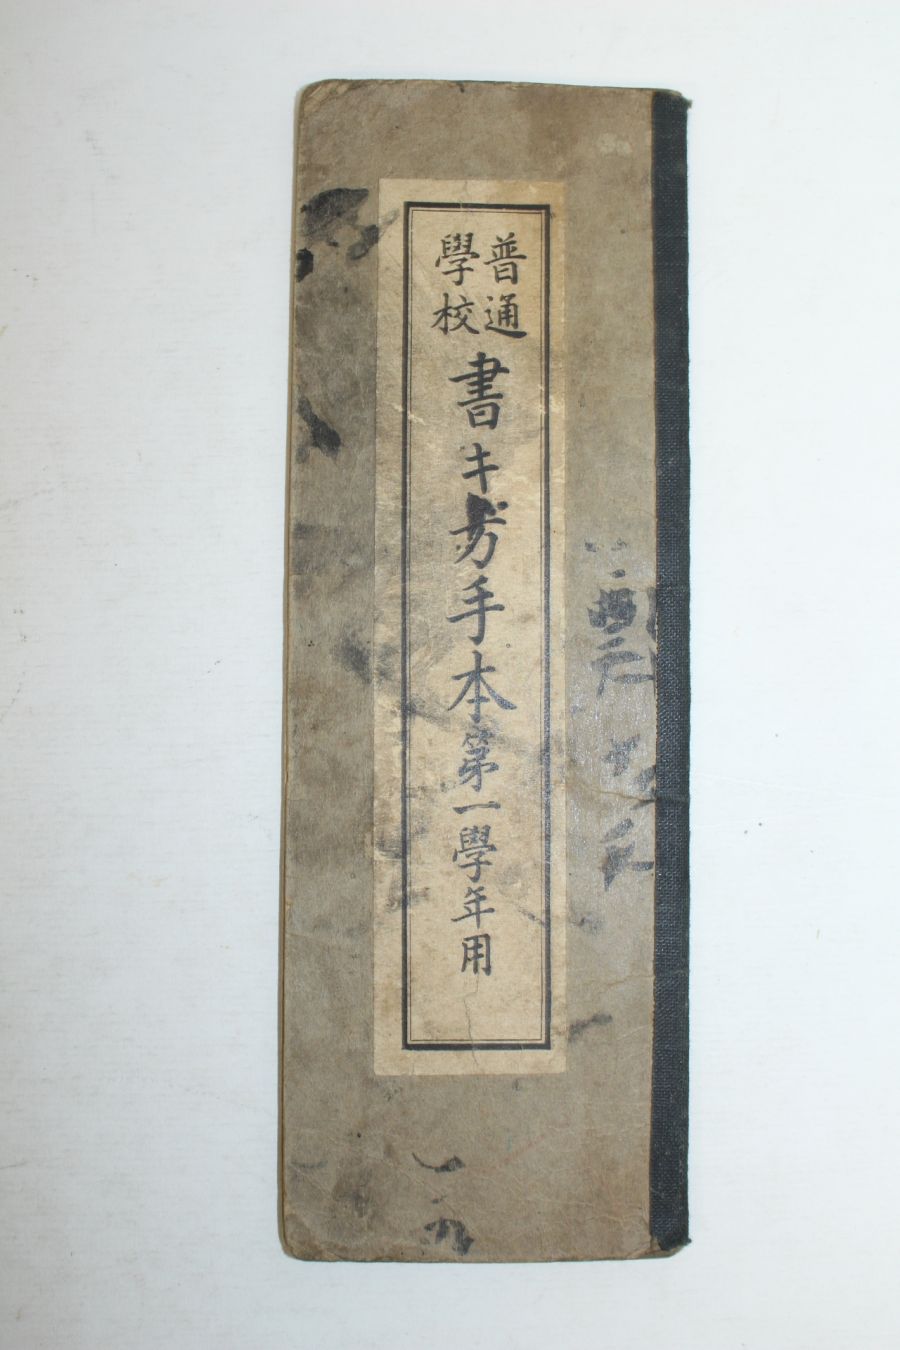 普通
學校
書キ方手本第一學年用